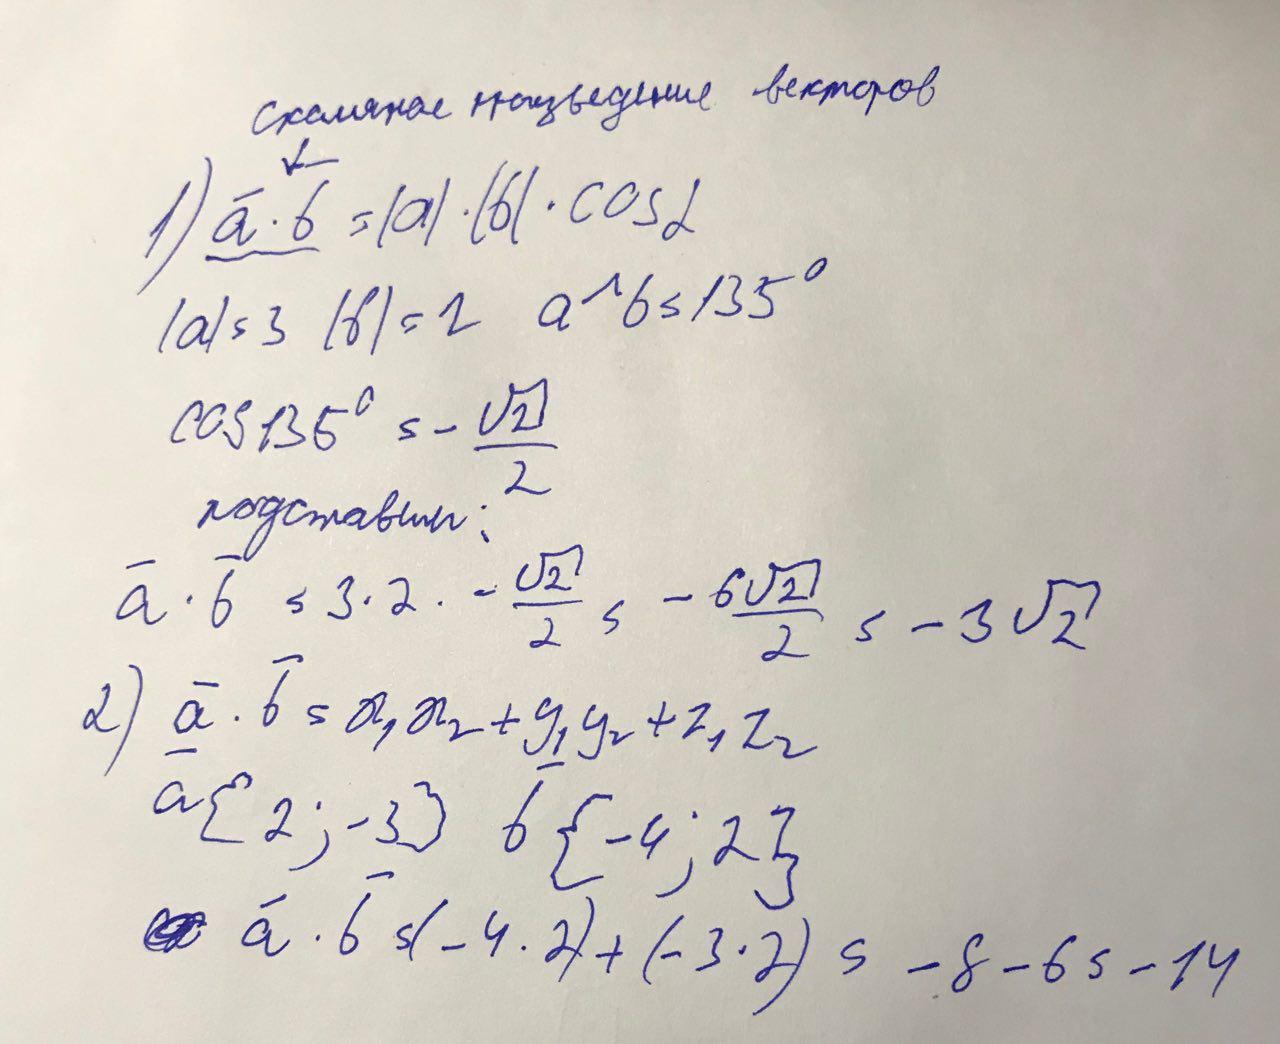 Скалярное произведение векторов
1) a̅ · b̅ = |a| · |b| · cos α
|a| = 3 |b| = 2 a^b = 135°
cos 135° = - √2/2
подставим:
a̅ · b̅ = 3 · 2 · - √2/2 = - 6√2/2 = - 3√2
2) a̅ · b̅ = x₁x₂ + y₁y₂ + z₁z₂
a̅ {2; -3} b̅ {-4; 2}
a̅ · b̅ = (-4 · 2) + (-3 · 2) = -8 - 6 = -14